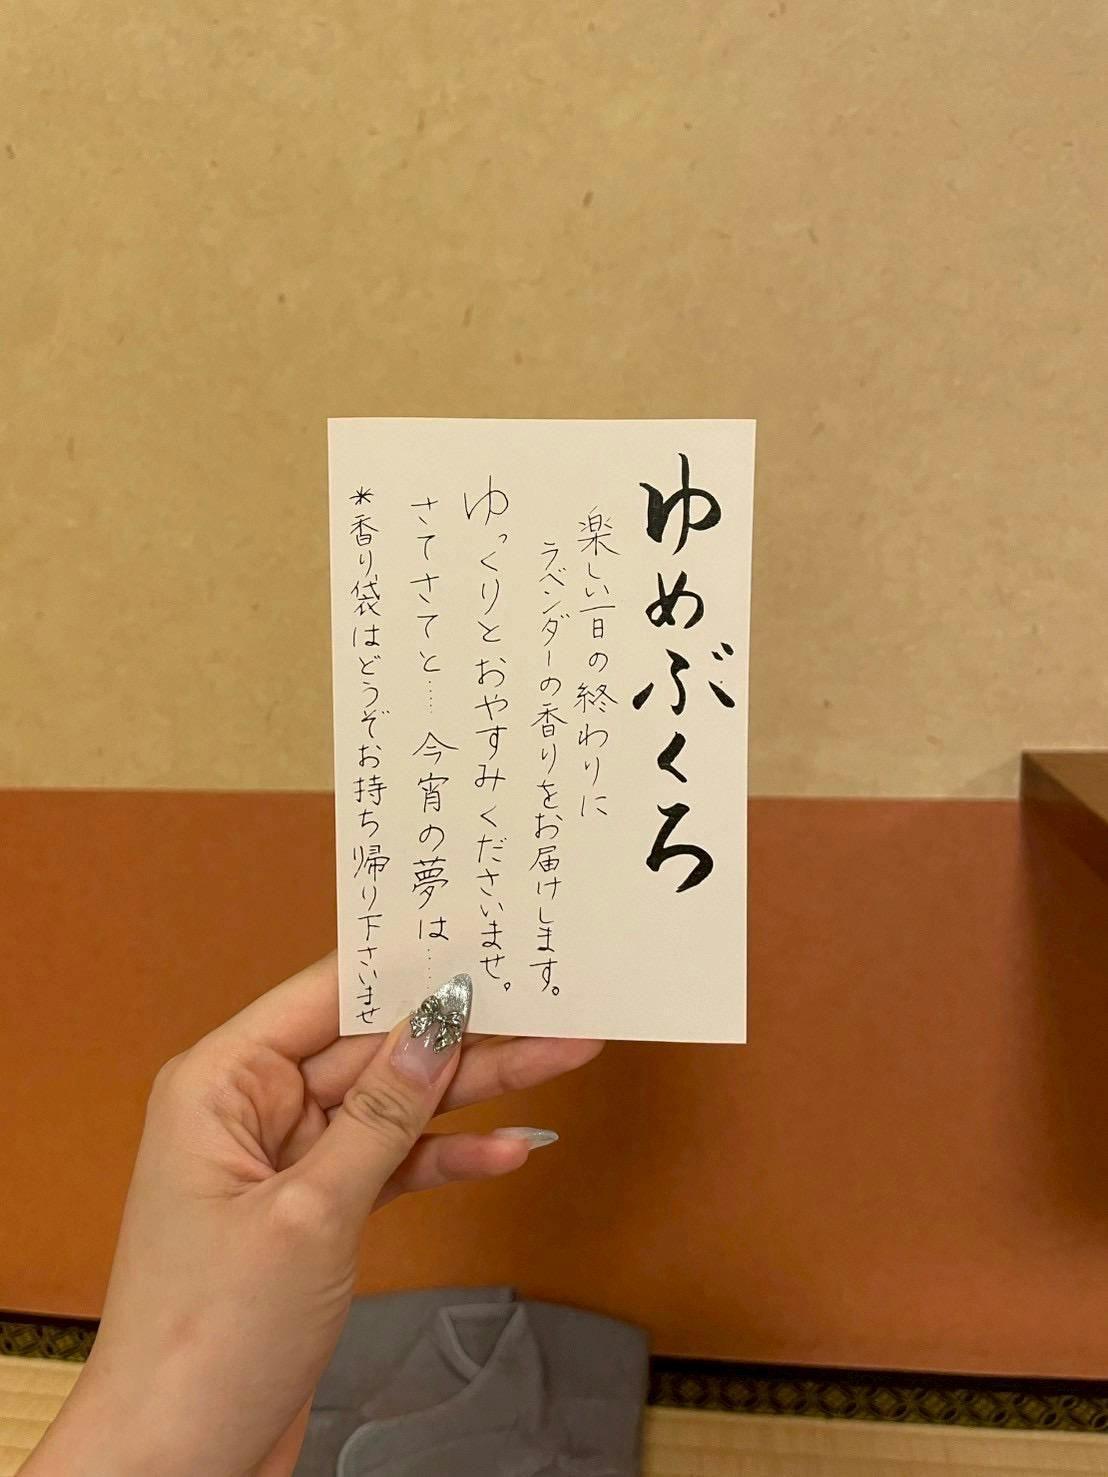 ゆめぶくろ
楽しい一日の終わりに
ラベンダーの香りをお届けします。
ゆっくりとおやすみくださいませ。
さてさてと……今宵の夢は……
*香り袋はどうぞお持ち帰り下さいませ